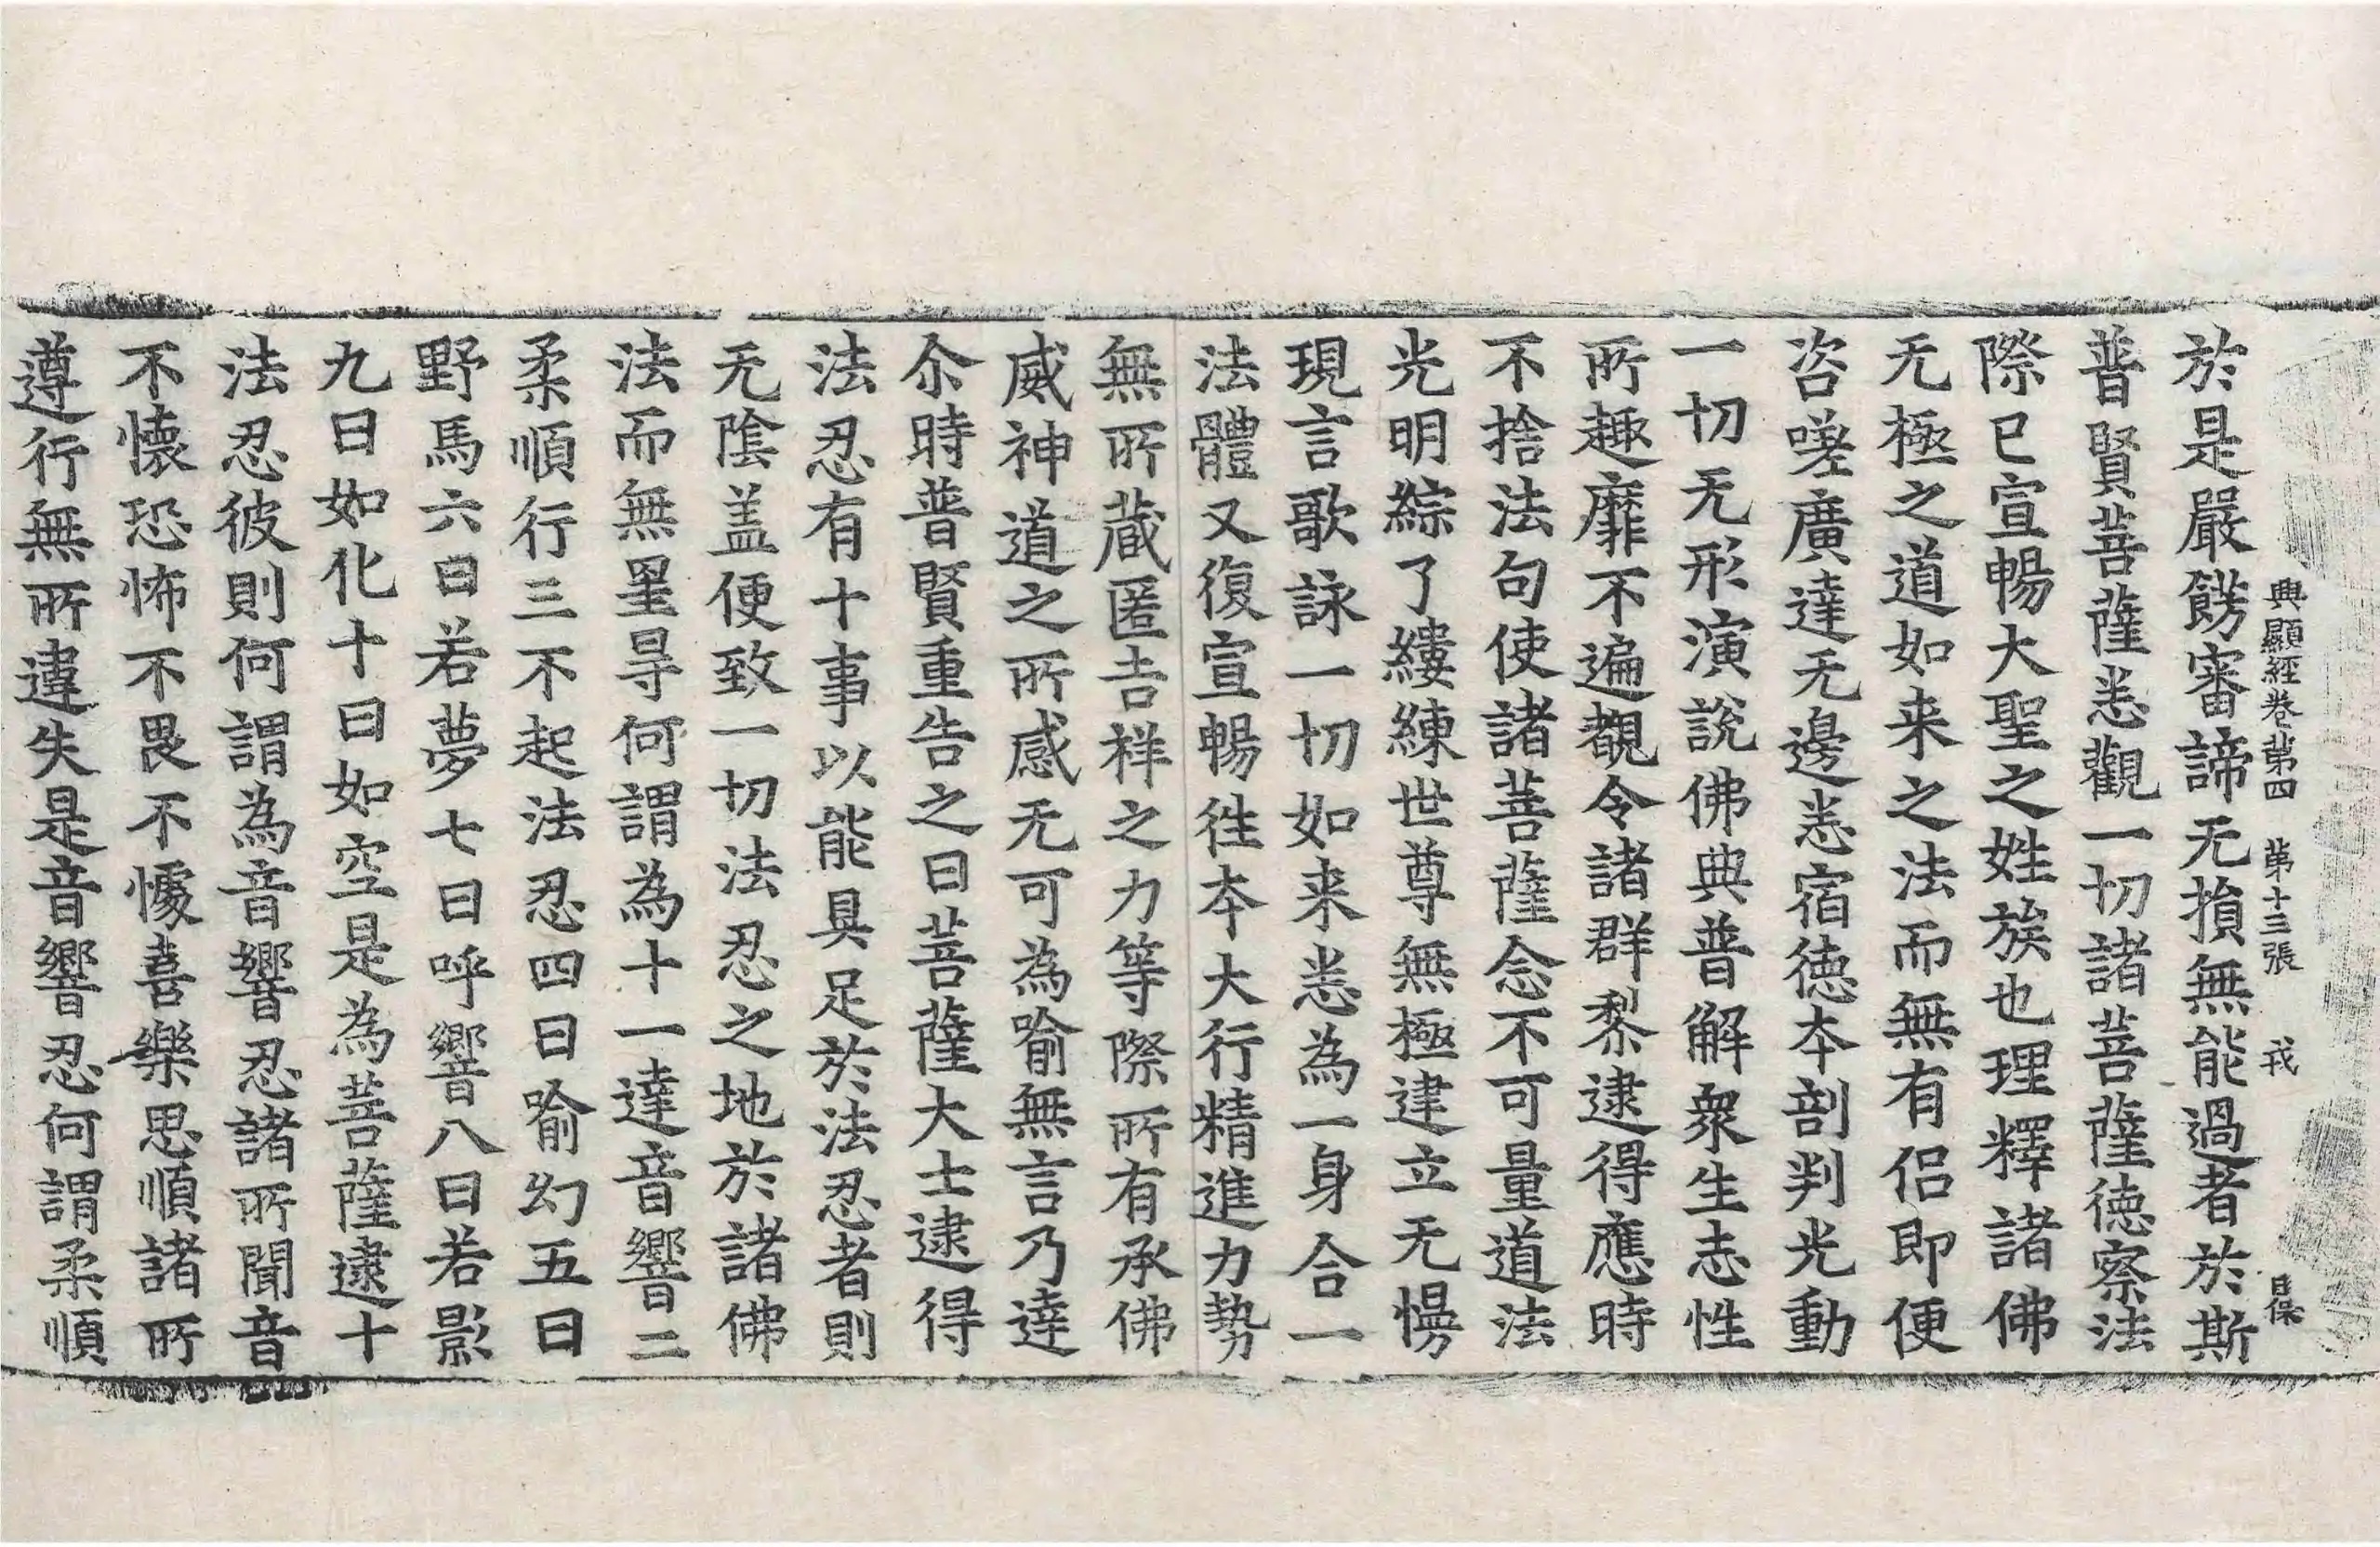 興顯經卷第四 第十三張 戎 自保
於是嚴餝審諦无損無能過者於斯
普賢菩薩悉觀一切諸菩薩德察法
際已宣暢大聖之姓族也理釋諸佛
无極之道如来之法而無有侶即便
咨嗟廣達无邊悉宿德夲剖判光動
一切无形演說佛典普解衆生志性
所趣靡不遍覩令諸群黎逮得應時
不捨法句使諸菩薩念不可量道法
光明綜了縷練世尊無極建立无慢
現言歌詠一切如来悉為一身合一
法體又復宣暢徃夲大行精進力勢
無所蔵匿吉祥之力等際所有承佛
威神道之所感无可為喻無言乃達
尒時普賢重告之曰菩薩大士逮得
法忍有十事以能具足於法忍者則
无陰盖便致一切法忍之地於諸佛
法而無罣㝵何謂為十一達音響二
柔順行三不起法忍四曰喻幻五曰
野馬六曰若夢七曰呼響八曰若影
九曰如化十曰如空是為菩薩逮十
法忍彼則何謂為音響忍諸所聞音
不懐恐怖不畏不懅喜樂思順諸所
遵行無所違失是音響忍何謂柔順